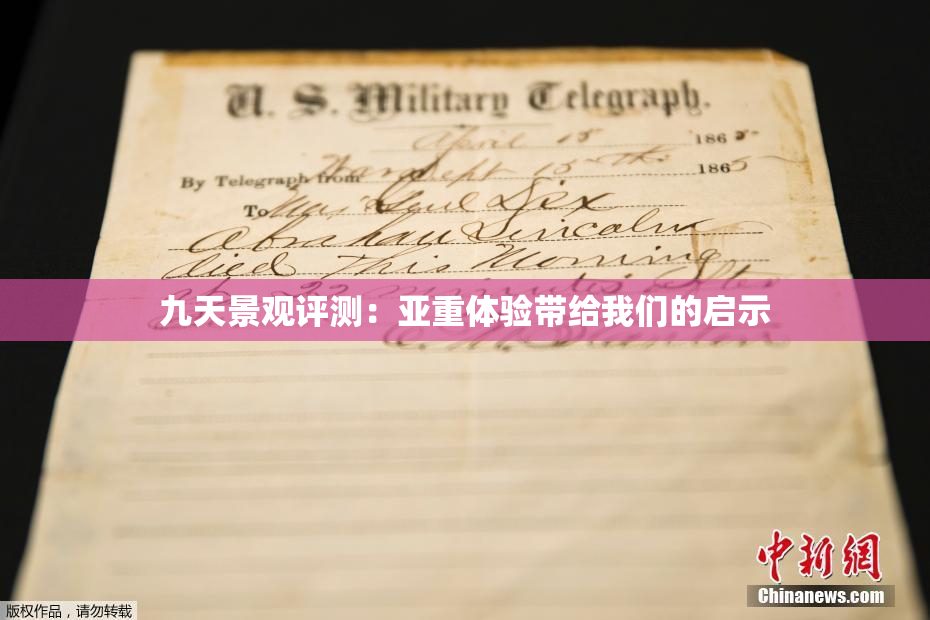 U. S. Military Telegraph.
April 15 1865
By Telegraph from War Dept 15th 1865
To Maj Genl Dix
Abraham Lincoln
died This Morning
at 22 minutes after
九天景观评测：亚重体验带给我们的启示
E. M. Stanton
中新网
Chinanews.com
版权作品，请勿转载